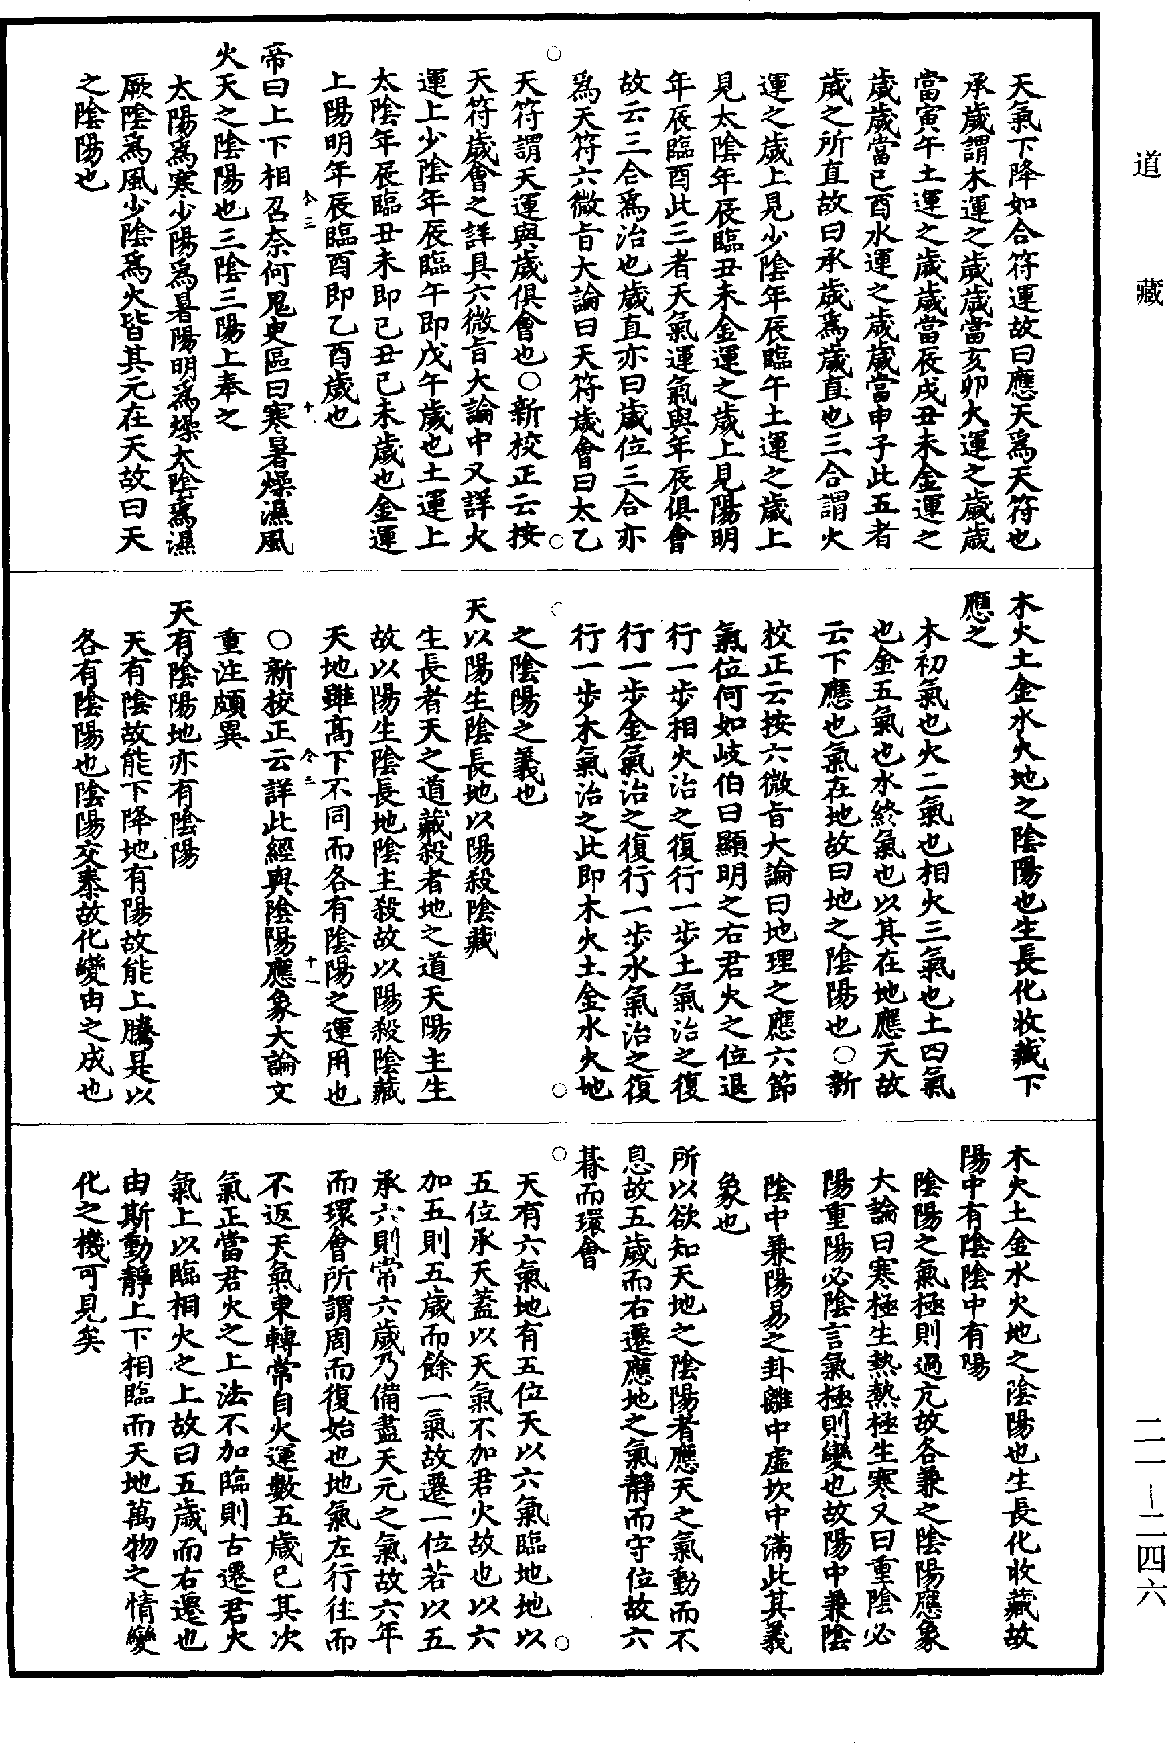 道藏
天氣下降如合符運故曰應天爲天符也
承歲謂木運之歲歲當亥卯火運之歲歲
當寅午土運之歲歲當辰戌丑未金運之
歲歲當已酉水運之歲歲當申子此五者
歲之所直故曰承歲爲歲直也三合謂火
運之歲上見少陰年辰臨午土運之歲上
見太陰年辰臨丑未金運之歲上見陽明
年辰臨酉此三者天氣運氣與年辰俱會
故云三合爲治也歲直亦曰歲位三合亦
爲天符六微旨大論曰天符歲會曰太乙
天符謂天運與歲俱會也○新校正云按
天符歲會之詳具六微旨大論中又詳火
運上少陰年辰臨午即戊午歲也土運上
太陰年辰臨丑未即己丑己未歲也金運
上陽明年辰臨酉即乙酉歲也
帝曰上下相召奈何鬼臾區曰寒暑燥濕風
火天之陰陽也三陰三陽上奉之
太陽爲寒少陽爲暑陽明爲燥太陰爲濕
厥陰爲風少陰爲火皆其元在天故曰天
之陰陽也
木火土金水火地之陰陽也生長化收藏下
應之
木初氣也火二氣也相火三氣也土四氣
也金五氣也水終氣也以其在地應天故
云下應也氣在地故曰地之陰陽也○新
校正云按六微旨大論曰地理之應六節
氣位何如岐伯曰顯明之右君火之位退
行一步相火治之復行一步土氣治之復
行一步金氣治之復行一步水氣治之復
行一步木氣治之此即木火土金水火地
之陰陽之義也
天以陽生陰長地以陽殺陰藏
生長者天之道藏殺者地之道天陽主生
故以陽生陰長地陰主殺故以陽殺陰藏
天地雖高下不同而各有陰陽之運用也
○新校正云詳此經與陰陽應象大論文
重注頗異
天有陰陽地亦有陰陽
天有陰故能下降地有陽故能上騰是以
各有陰陽也陰陽交泰故化變由之成也
木火土金水火地之陰陽也生長化收藏故
陽中有陰陰中有陽
陰陽之氣極則過亢故各兼之陰陽應象
大論曰寒極生熱熱極生寒又曰重陰必
陽重陽必陰言氣極則變也故陽中兼陰
陰中兼陽易之卦離中虛坎中滿此其義
象也
所以欲知天地之陰陽者應天之氣動而不
息故五歲而右遷應地之氣靜而守位故六
朞而環會
天有六氣地有五位天以六氣臨地地以
五位承天蓋以天氣不加君火故也以六
加五則五歲而餘一氣故遷一位若以五
承六則常六歲乃備盡天元之氣故六年
而環會所謂周而復始也地氣左行往而
不返天氣東轉常自火運數五歲已其次
氣正當君火之上法不加臨則右遷君火
氣上以臨相火之上故曰五歲而右遷也
由斯動靜上下相臨而天地萬物之情變
化之機可見矣
二一-二四六